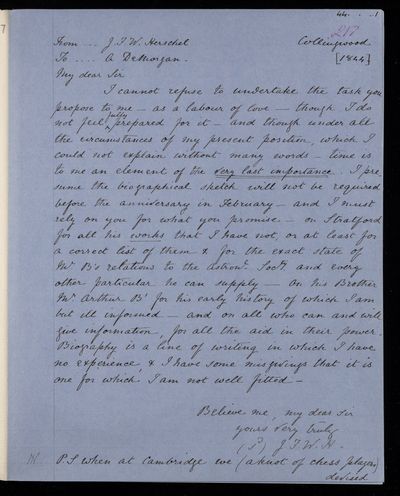 44 . . . 1
217
From .... J. F. W. Herschel Collingwood
To ..... A DeMorgan. [1844]
My dear Sir
I cannot refuse to undertake the task you
propose to me – as a labour of love – though I do
not feel fully prepared for it – and though under all
the circumstances of my present position, which I
could not explain without many words – time is
to me an element of the very last importance. I pre
sume the biographical sketch will not be required
before the anniversary in February – and I must
rely on you for what you promise – on Stratford
for all his works that I have not, or at least for
a correct list of them & for the exact state of
Mr B's relations to the astron. Socy, and every
other particular he can supply – On his Brother
Mr Arthur B for his early history of which I am
but ill informed – and on all who can and will
give information, for all the aid in their power.
Biography is a line of writing in which I have
no experience, & I have some misgivings that it is
one for which I am not well fitted –
Believe me, my dear Sir
yours very truly
J. F. W. H.
P.S. when at Cambridge we (a knot of chess players)
devised